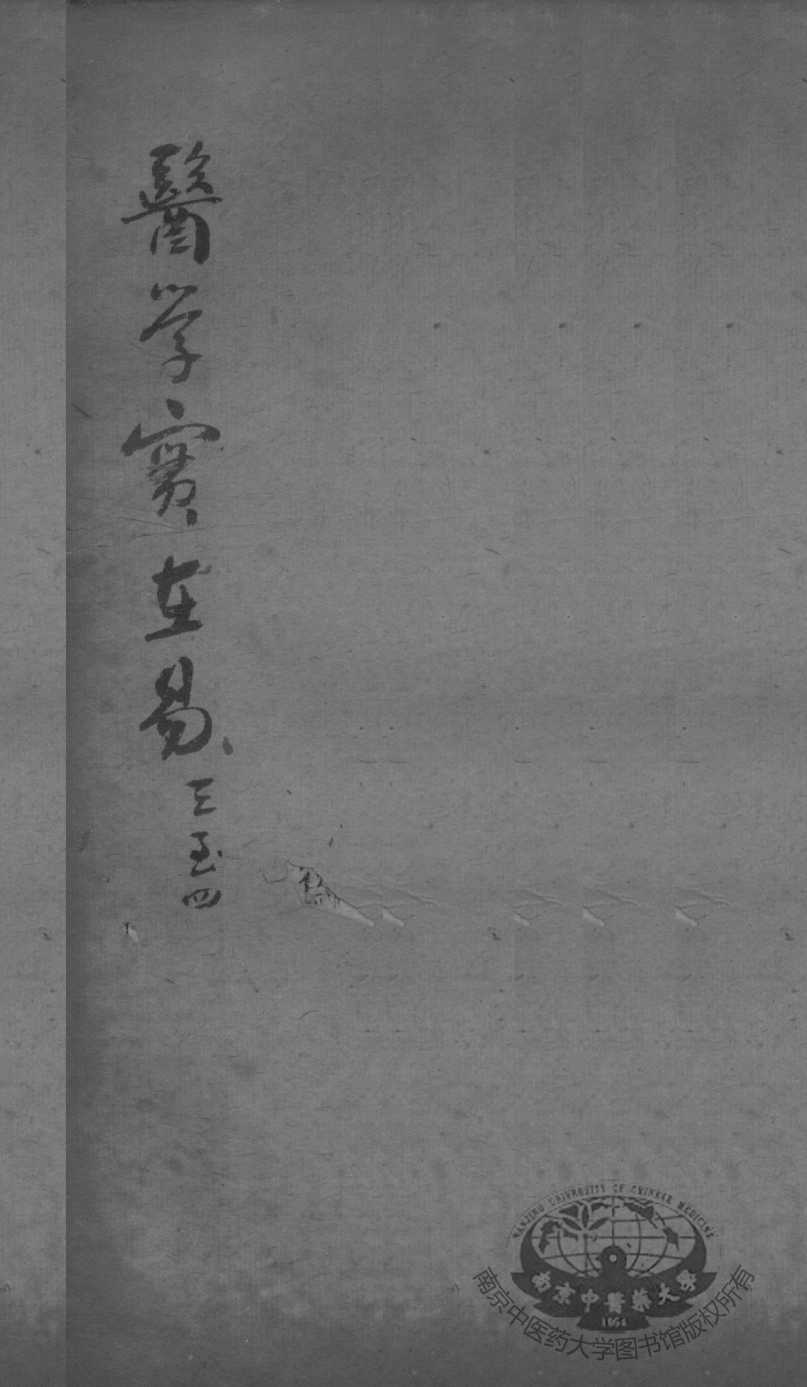 醫学實在易
三至四
NANJING UNIVERSITY OF CHINESE MEDICINE
南京中醫藥大學
1954
南京中医药大学图书馆版权所有